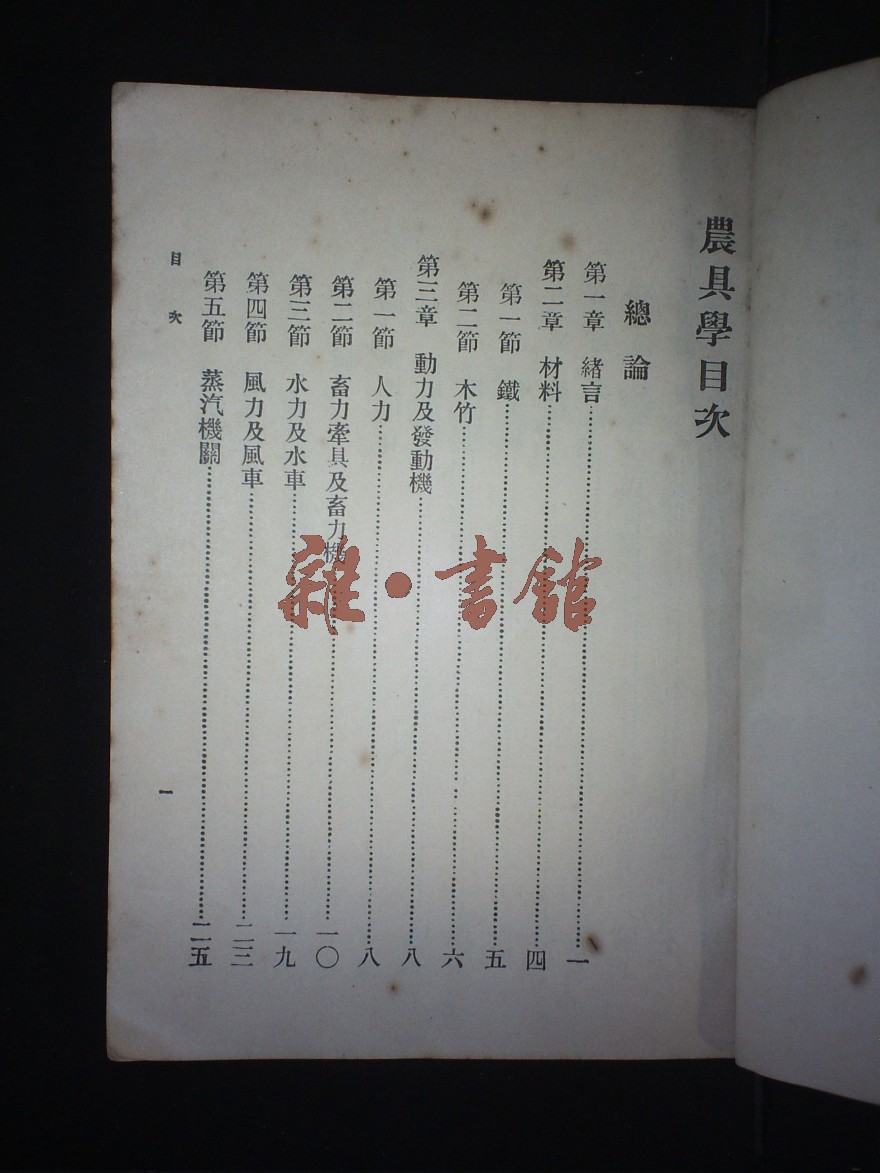 農具學目次
總論
第一章 緒言…………一
第二章 材料…………四
第一節 鐵…………五
第二節 木竹…………六
第三章 動力及發動機…………八
第一節 人力…………八
第二節 畜力牽具及畜力機…………一〇
第三節 水力及水車…………一九
第四節 風力及風車…………二三
第五節 蒸汽機關…………二五
目次
一
雜·書館